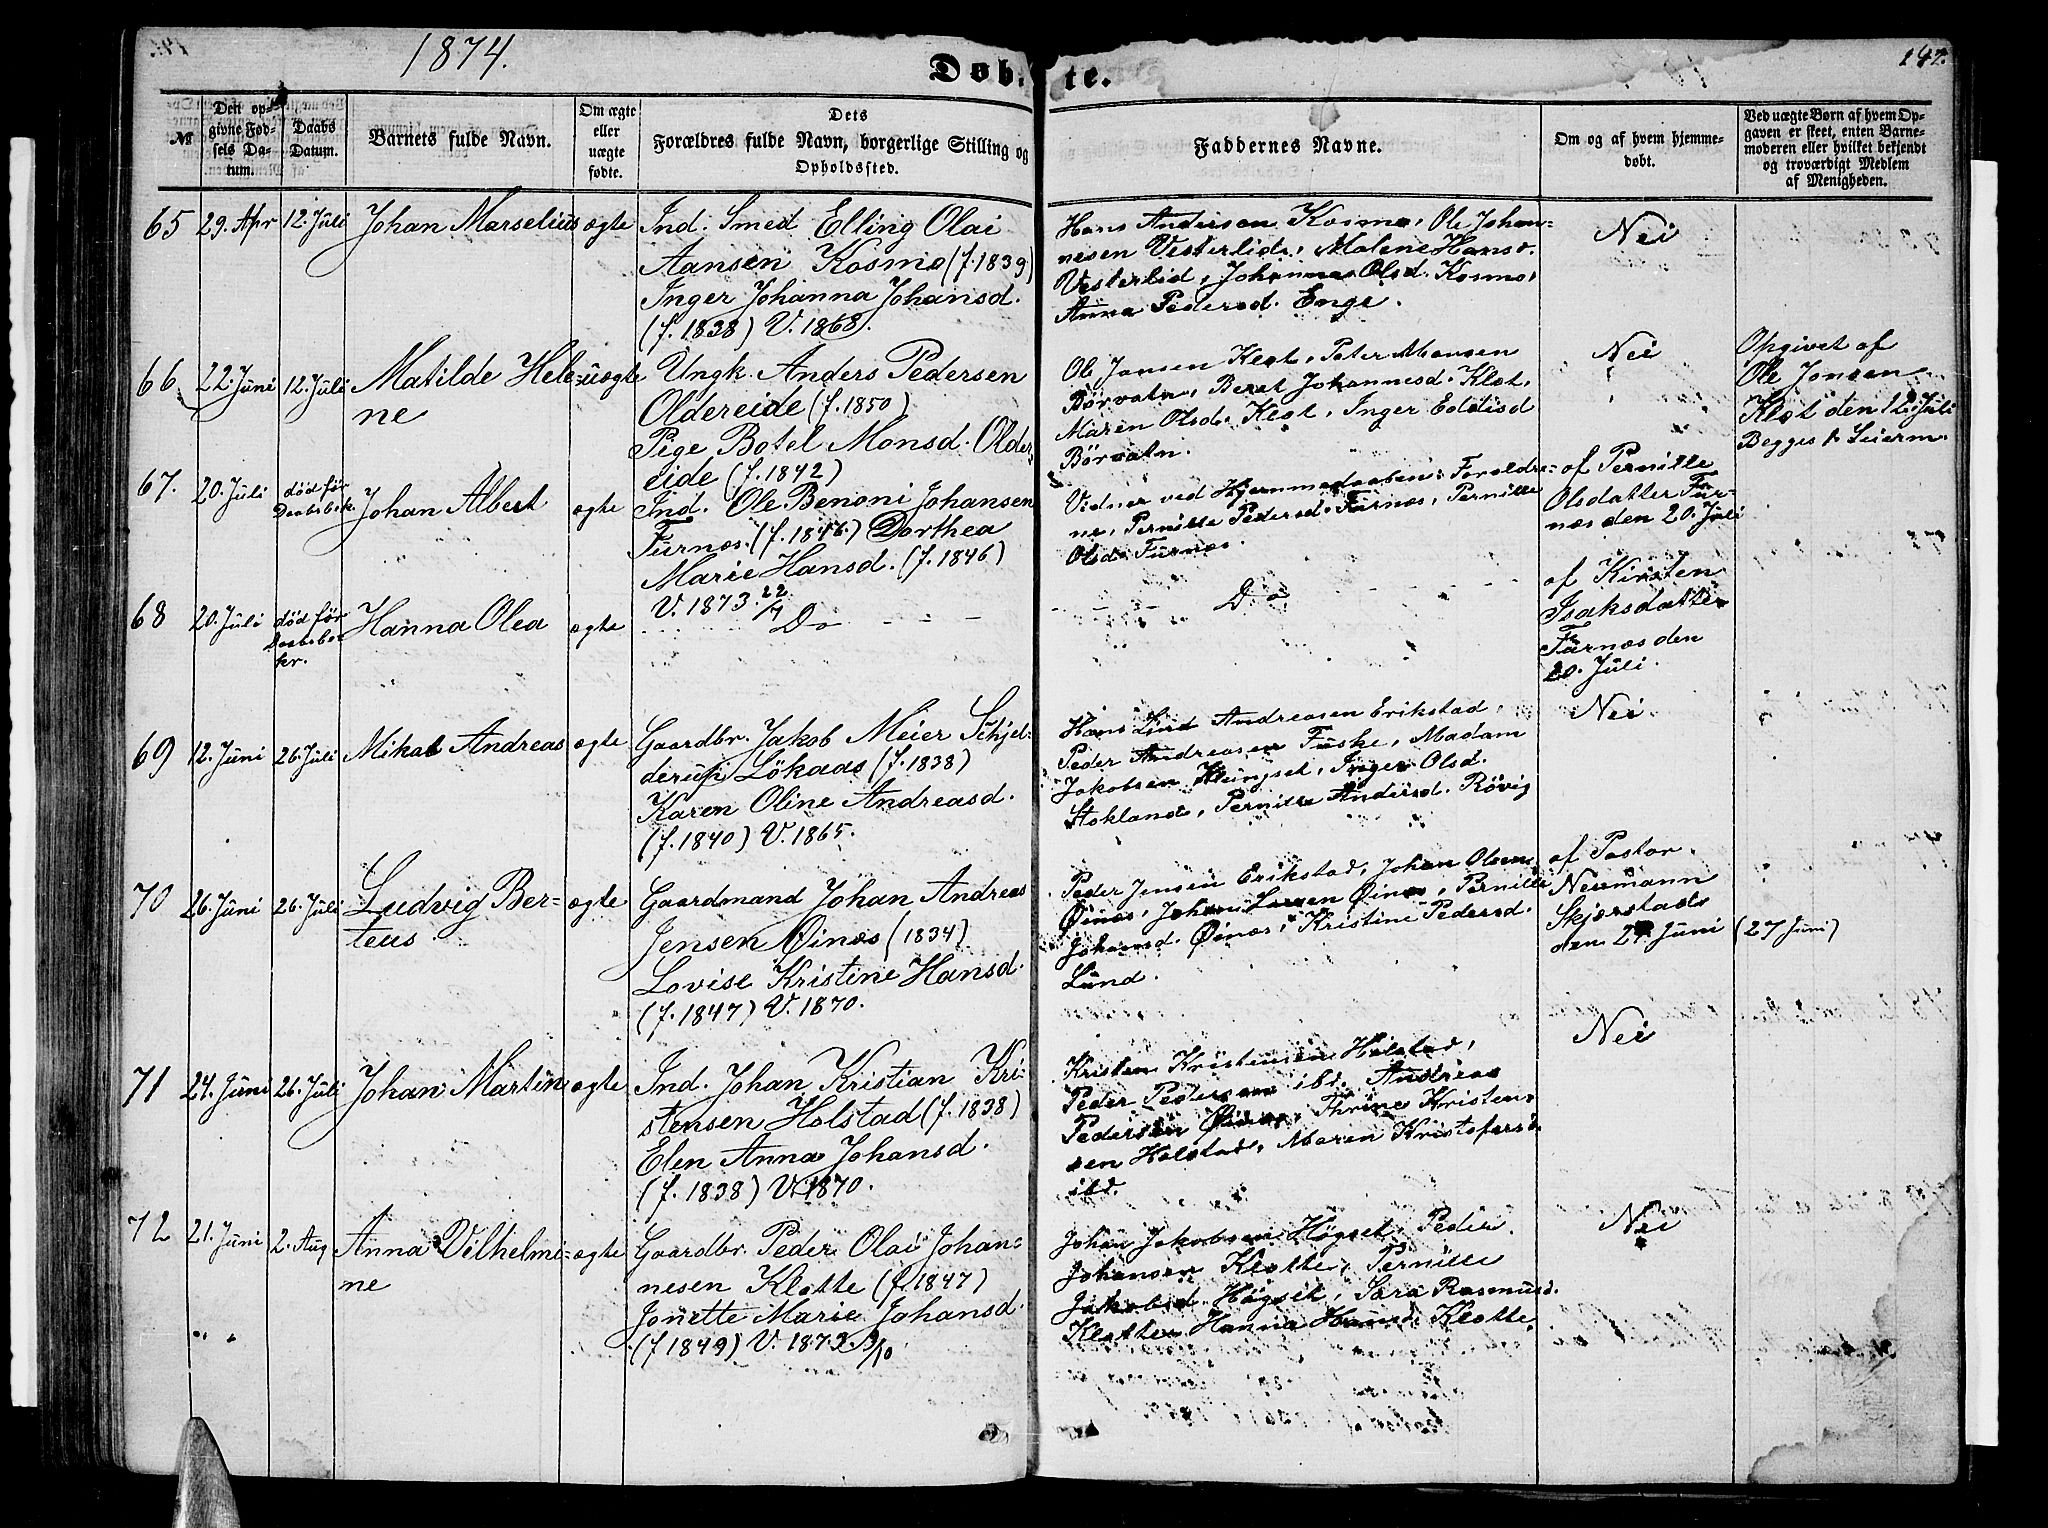 1874.
Døbte.
147.
№
Den op-
givne Fød-
sels Da-
tum.
Daabs
Datum.
Barnets fulde Navn.
Om ægte
eller
uægte
fødte.
Dets
Forældres fulde Navn, borgerlige Stilling og
Opholdssted.
Faddernes Navne.
Om og af hvem hjemme-
døbt.
Ved uægte Børn af hvem Op-
gaven er skeet, enten Barne-
moderen eller hvilket bekjendt
og troværdigt Medlem
af Menigheden.
65 29. Apr 12. Juli Johan Marselius ægte
Ind. Smed Elling Olai
Aansen Kosmo (f. 1839)
Inger Johanna Johansd.
(f. 1838) V. 1868.
Hans Andersen Kosmo, Ole Johan-
nesen Vesterlid, Malene Hansd.
Vesterlid, Johanna Olsd. Kosmo,
Anna Pedersd. Enge.
Nei
66. 22. Juni 12. Juli Matilde Hele-
ne
uægte
Ungk. Anders Pedersen
Oldereide (f. 1850)
Pige Botel Monsd. Older-
eide (f. 1842)
Ole Jonsen Kløt, Peter Monsen
Børvatn, Beret Johannesd. Kløt,
Maren Olsd. Kløt, Inger Eddisd
Børvatn.
Nei
Opgivet af
Ole Jonsen
Kløt den 12. Juli
Begges 1. Leierm.
67. 20. Juli
død før
Daabsbek.
Johan Albert ægte
Ind. Ole Benoni Johansen
Furnæs. (f. 1846) Dorthea
Marie Hansd. (f. 1846)
V. 1873 22/7
Vidner ved Hjemmedaaben: Forældre-
ne, Pernille Pedersd. Furnæs, Pernille
Olsd. Furnæs.
af Pernille
Olsdatter Fur-
næs den 20. Juli
68 20. Juli
død før
Daabsbe-
kr.
Hanna Olea ægte
Do
Do
af Kirsten
Isaksdatter
Furnæs den
20. Juli.
69 12. Juni 26. Juli Mikal Andreas ægte
Gaardbr. Jakob Meier Schjel-
derup Løkaas (f. 1838)
Karen Oline Andreasd.
(f. 1840) V. 1865.
Hans Lind Andreasen Erikstad,
Peder Andreasen Fuske, Madam
Jakobsen Klungset, Inger Olsd.
Stokland, Pernille Andersd. Røvig
Nei
70 26. Juni 26. Juli Ludvig Ber-
teus
ægte
Gaardmand Johan Andreas
Jensen Øinæs (1834)
Lovise Kristine Hansd.
(f. 1847) V. 1870.
Peder Jensen Erikstad, Johan Olsen
Øinæs, Johan Larsen Øinæs, Pernille
Johansd. Øinæs, Kristine Pedersd.
Lund.
af Pastor
Neumann
Skjerstad
den 27 Juni (27 Juni)
71 24. Juni 26. Juli Johan Martin ægte
Ind. Johan Kristian Kri-
stensen Holstad (f. 1838)
Elen Anna Johansd.
(f. 1838) V. 1870.
Kristen Kristensen Holstad,
Peder Pedersen ibd. Andreas
Pedersen Øinæs, Thrine Kristen-
sen Holstad, Maren Kristofersd.
ibd.
Nei
72 21. Juni 2. Aug Anna Vilhelmi-
ne
ægte
Gaardbr. Peder Olai Johan-
nesen Kløtte (f. 1847)
Jonette Marie Johansd.
(f 1849) V. 1873. 3/10
Johan Jakobsen Høgset, Peder
Johansen Kløtte, Pernille
Jakobsd. Høgset, Sara Rasmusd.
Kløtte, Hanna Hansd. Kløtte.
Nei